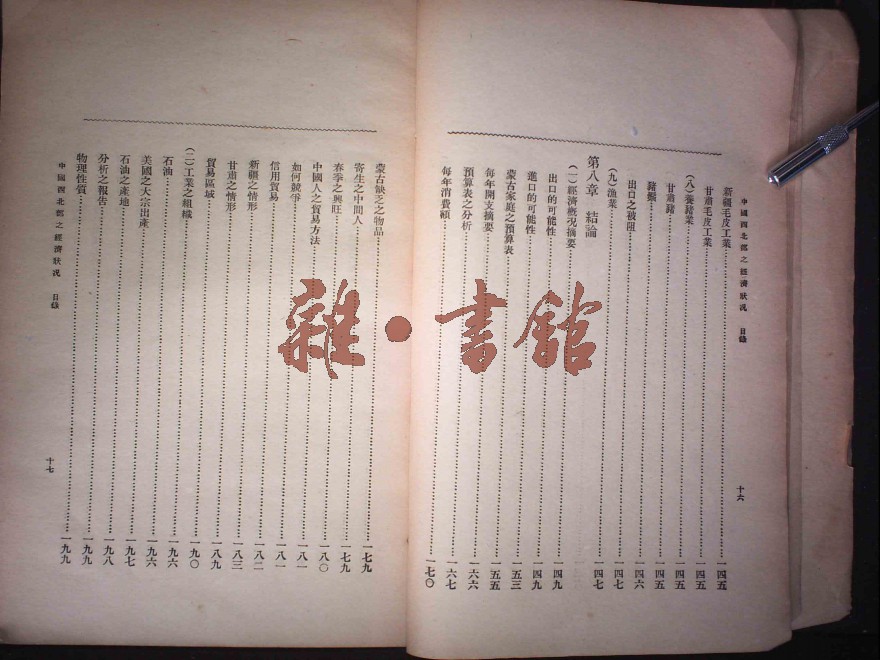 中國西北部之經濟狀況 目錄
十六
新疆毛皮工業 一四五
甘肅毛皮工業 一四五
(八)養豬業 一四五
甘肅豬 一四五
豬鬃 一四五
出口之被阻 一四六
(九)漁業 一四七
第八章 結論 一四七
(一)經濟概況摘要
出口的可能性 一四九
進口的可能性 一四九
蒙古家庭之預算表 一五三
每年開支摘要 一五五
預算表之分析 一六六
每年消費額 一六七
一七〇
蒙古缺乏之物品 一七九
寄生之中間人 一七九
春季之興旺
中國人之貿易方法 一八〇
如何競爭 一八一
信用貿易 一八一
新疆之情形 一八二
甘肅之情形 一八三
貿易區域 一八九
(二)工業之組織 一九〇
石油 一九六
美國之大宗出產 一九六
石油之產地 一九七
分析之報告 一九八
物理性質 一九九
一九九
中國西北部之經濟狀況 目錄
十七
雜·書館